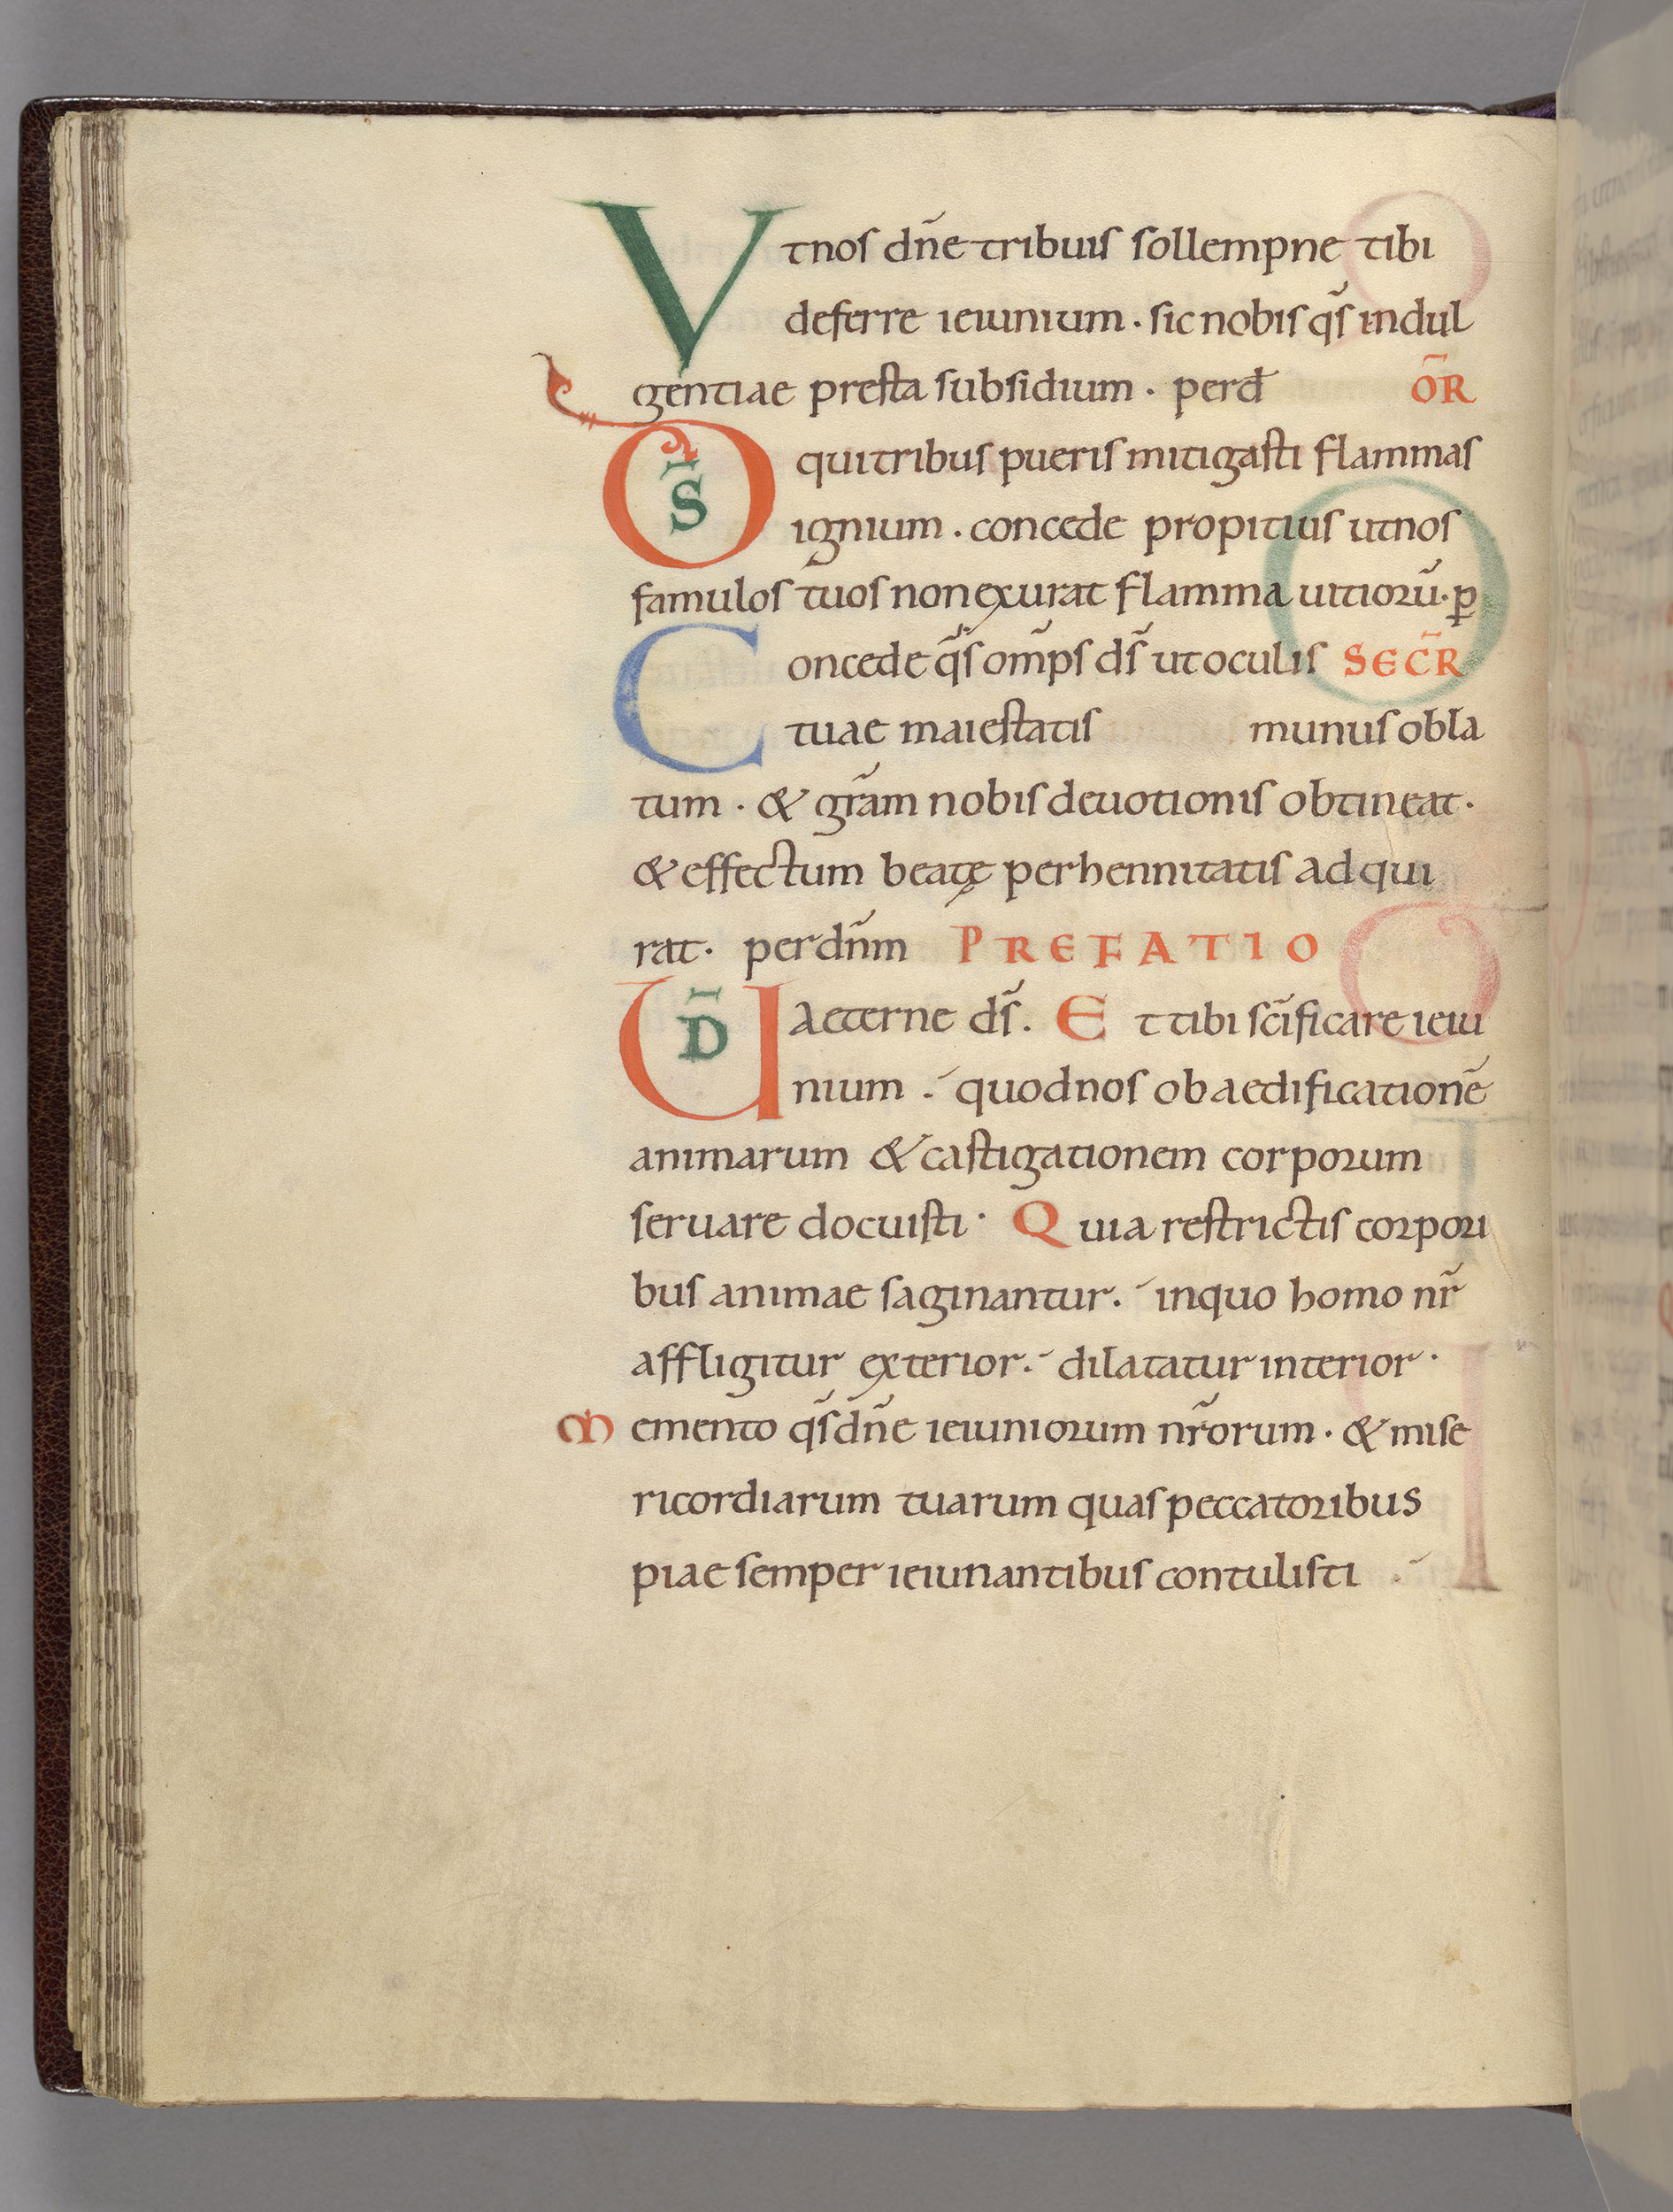 Vtnos dñe tribuis sollempne tibi
deferre ieiunium · sic nobis q̃s indul
gentiae presta subsidium · perđ ÕR
D̃S qui tribus pueris mitigasti flammas
ignium · concede propitius ut nos
famulos tuos non exurat flamma uitiorũ · ꝑ
Concede q̃s om̃ps ds̃ ut oculis SECR̃
tuae maiestatis munus obla
tum · & grãm nobis deuotionis obtineat ·
& effectum beatę perhennitatis adqui
rat · per dñm PREFATIO
UD̃ aeterne ds̃. Et tibi sc̃ificare ieiu
nium . quod nos ob aedificationẽ
animarum & castigationem corporum
seruare docuisti · Quia restrictis corpori
bus animae saginantur . in quo homo nr̃
affligitur exterior . dilatatur interior ·
Memento q̃s dñe ieiuniorum nr̃orum · & mise
ricordiarum tuarum quas peccatoribus
piae semper ieiunantibus contulisti .